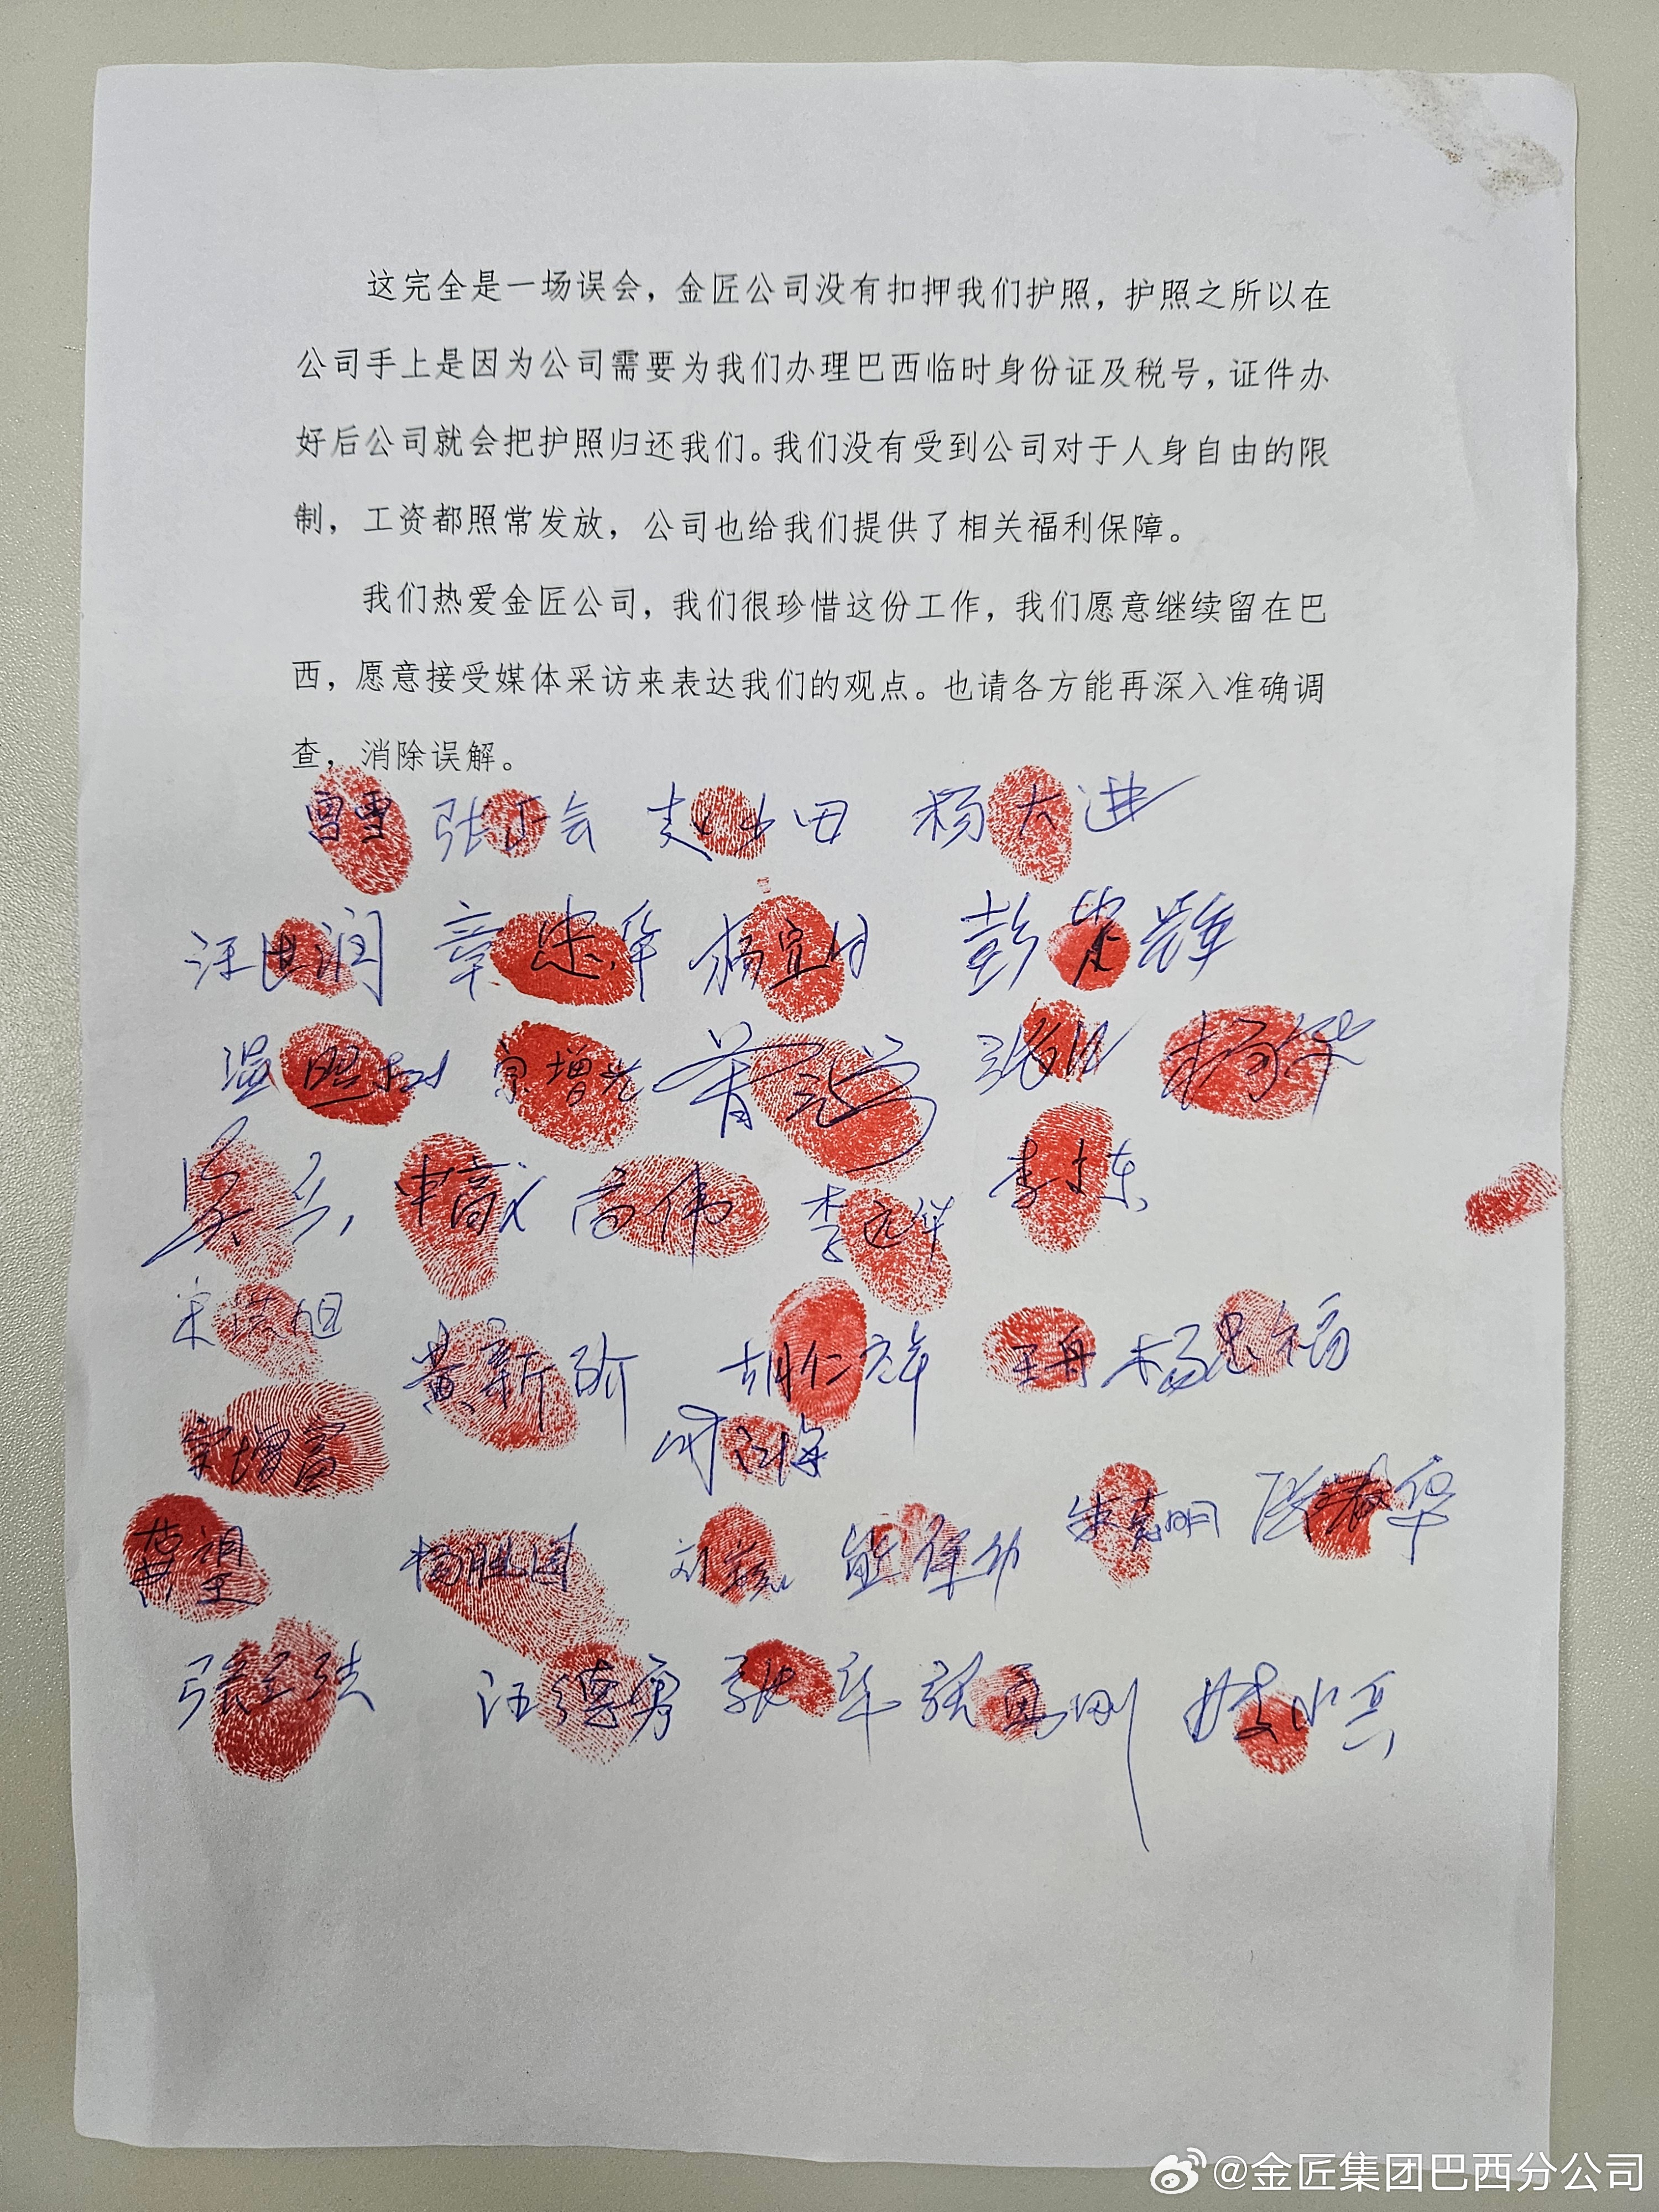 这完全是一场误会，金匠公司没有扣押我们护照，护照之所以在
公司手上是因为公司需要为我们办理巴西临时身份证及税号，证件办
好后公司就会把护照归还我们。我们没有受到公司对于人身自由的限
制，工资都照常发放，公司也给我们提供了相关福利保障。
我们热爱金匠公司，我们很珍惜这份工作，我们愿意继续留在巴
西，愿意接受媒体采访来表达我们的观点。也请各方能再深入准确调
查，消除误解。
张正会 杨大进
汪世润 章忠华 杨宜 彭 辉
温 宗增光 杨华
吴兵 高伟 李远华 李文东
宋洪旭 黄新 胡仁 王丹 杨忠福
宗增富
杨胜国 朱克明 华
张 汪德勇 张军 张 刚 兵
@金匠集团巴西分公司